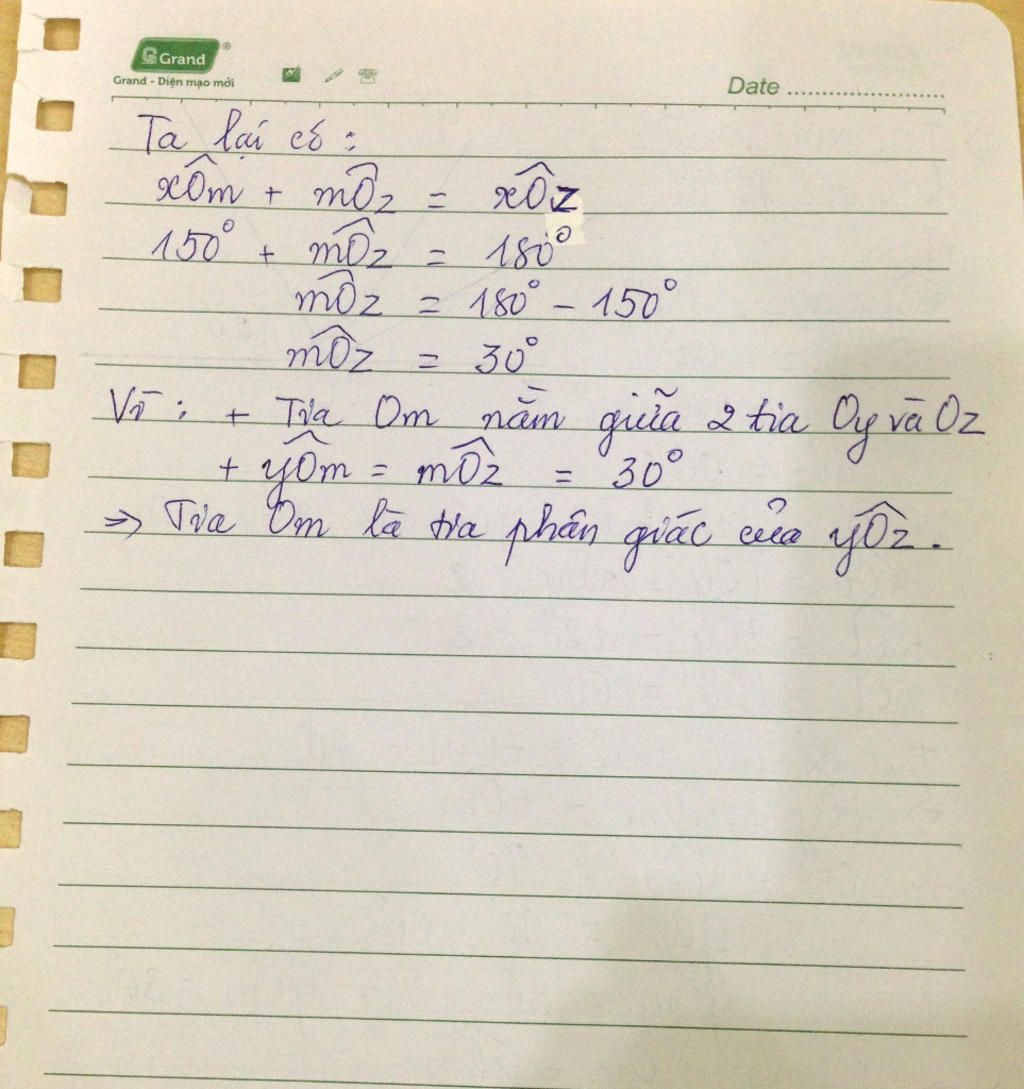 Grand®
Grand - Diện mạo mới
Date ........................
Ta lại có :
xÔm + mÔz = xÔz
150° + mÔz = 180°
mÔz = 180° - 150°
mÔz = 30°
Vì : + Tia Om nằm giữa 2 tia Oy và Oz
+ yÔm = mÔz = 30°
=> Tia Om là tia phân giác của yÔz.